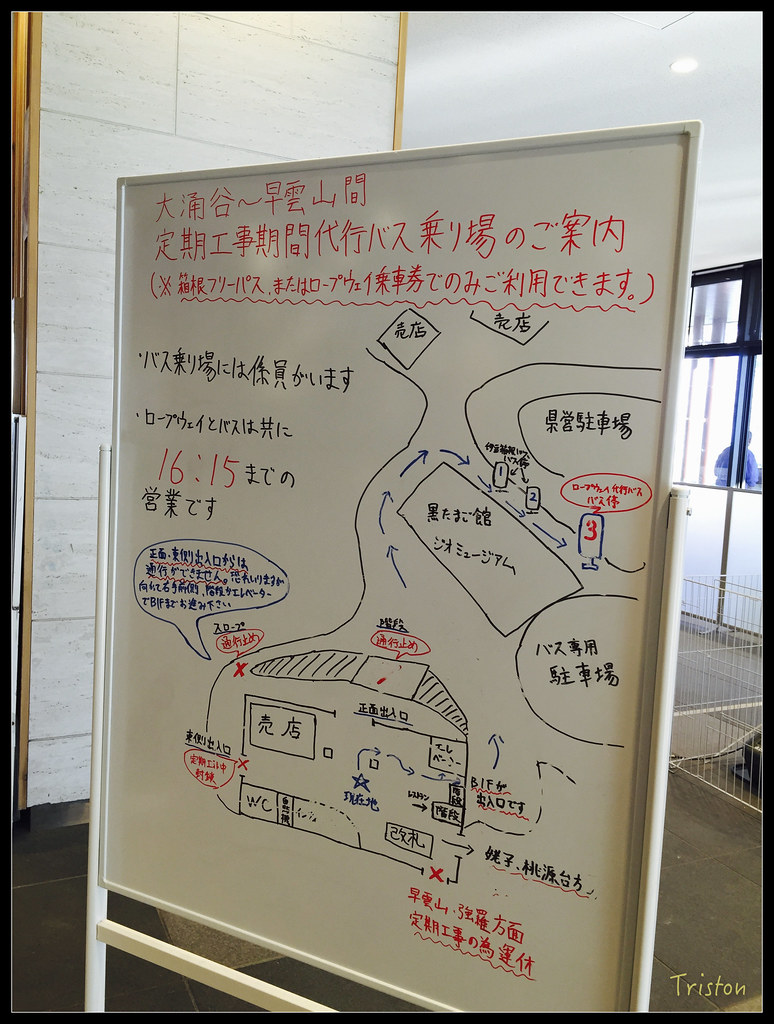 大涌谷～早雲山間
定期工事期間代行バス乗り場のご案内
(※箱根フリーパス、またはロープウェイ乗車券でのみご利用できます。)
売店
売店
・バス乗り場には係員がいます
県営駐車場
・ロープウェイとバスは共に
16:15までの
営業です
伊豆箱根バス
バス停
1
2
ロープウェイ代行バス
バス停
3
黒たまご館
ジオミュージアム
正面・東側出入口からは
通行ができません。恐れいりますが
向って右手前側、階段かエレベーター
でB1Fまでお進み下さい
スロープ
通行止め
階段
通行止め
バス専用
駐車場
正面出入口
売店
東側出入口
定期工事中
封鎖
エレ
ベーター
現在地
レストラン
階段
階段
B1Fが
出入口です
WC
自販機
改札
姥子、桃源台方
早雲山・強羅方面
定期工事の為運休
Triston